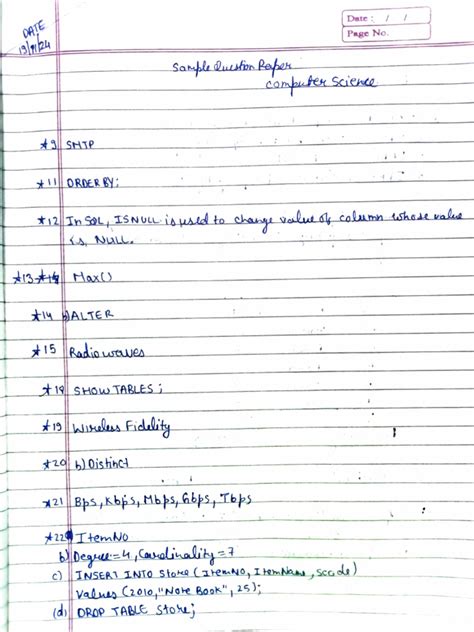 DATE
Date : / /
Page No.
Sample Question Paper
Computer Science
*9 SMTP
*11 ORDER BY;
*12 In SQL, ISNULL is used to change value of column whose value
is, NULL.
*13 *14 Max()
*14 b) ALTER
*15 Radio waves
*18 SHOW TABLES ;
*19 Wireless Fidelity
*20 b) Distinct
*21 Bps, Kbps, Mbps, Gbps, Tbps
*22 ItemNo
b) Degree = 4, Cardinality = 7
c) INSERT INTO Store (ItemNO, ItemName, Scode)
Values (2010, "Note Book", 25);
(d) DROP TABLE Store;